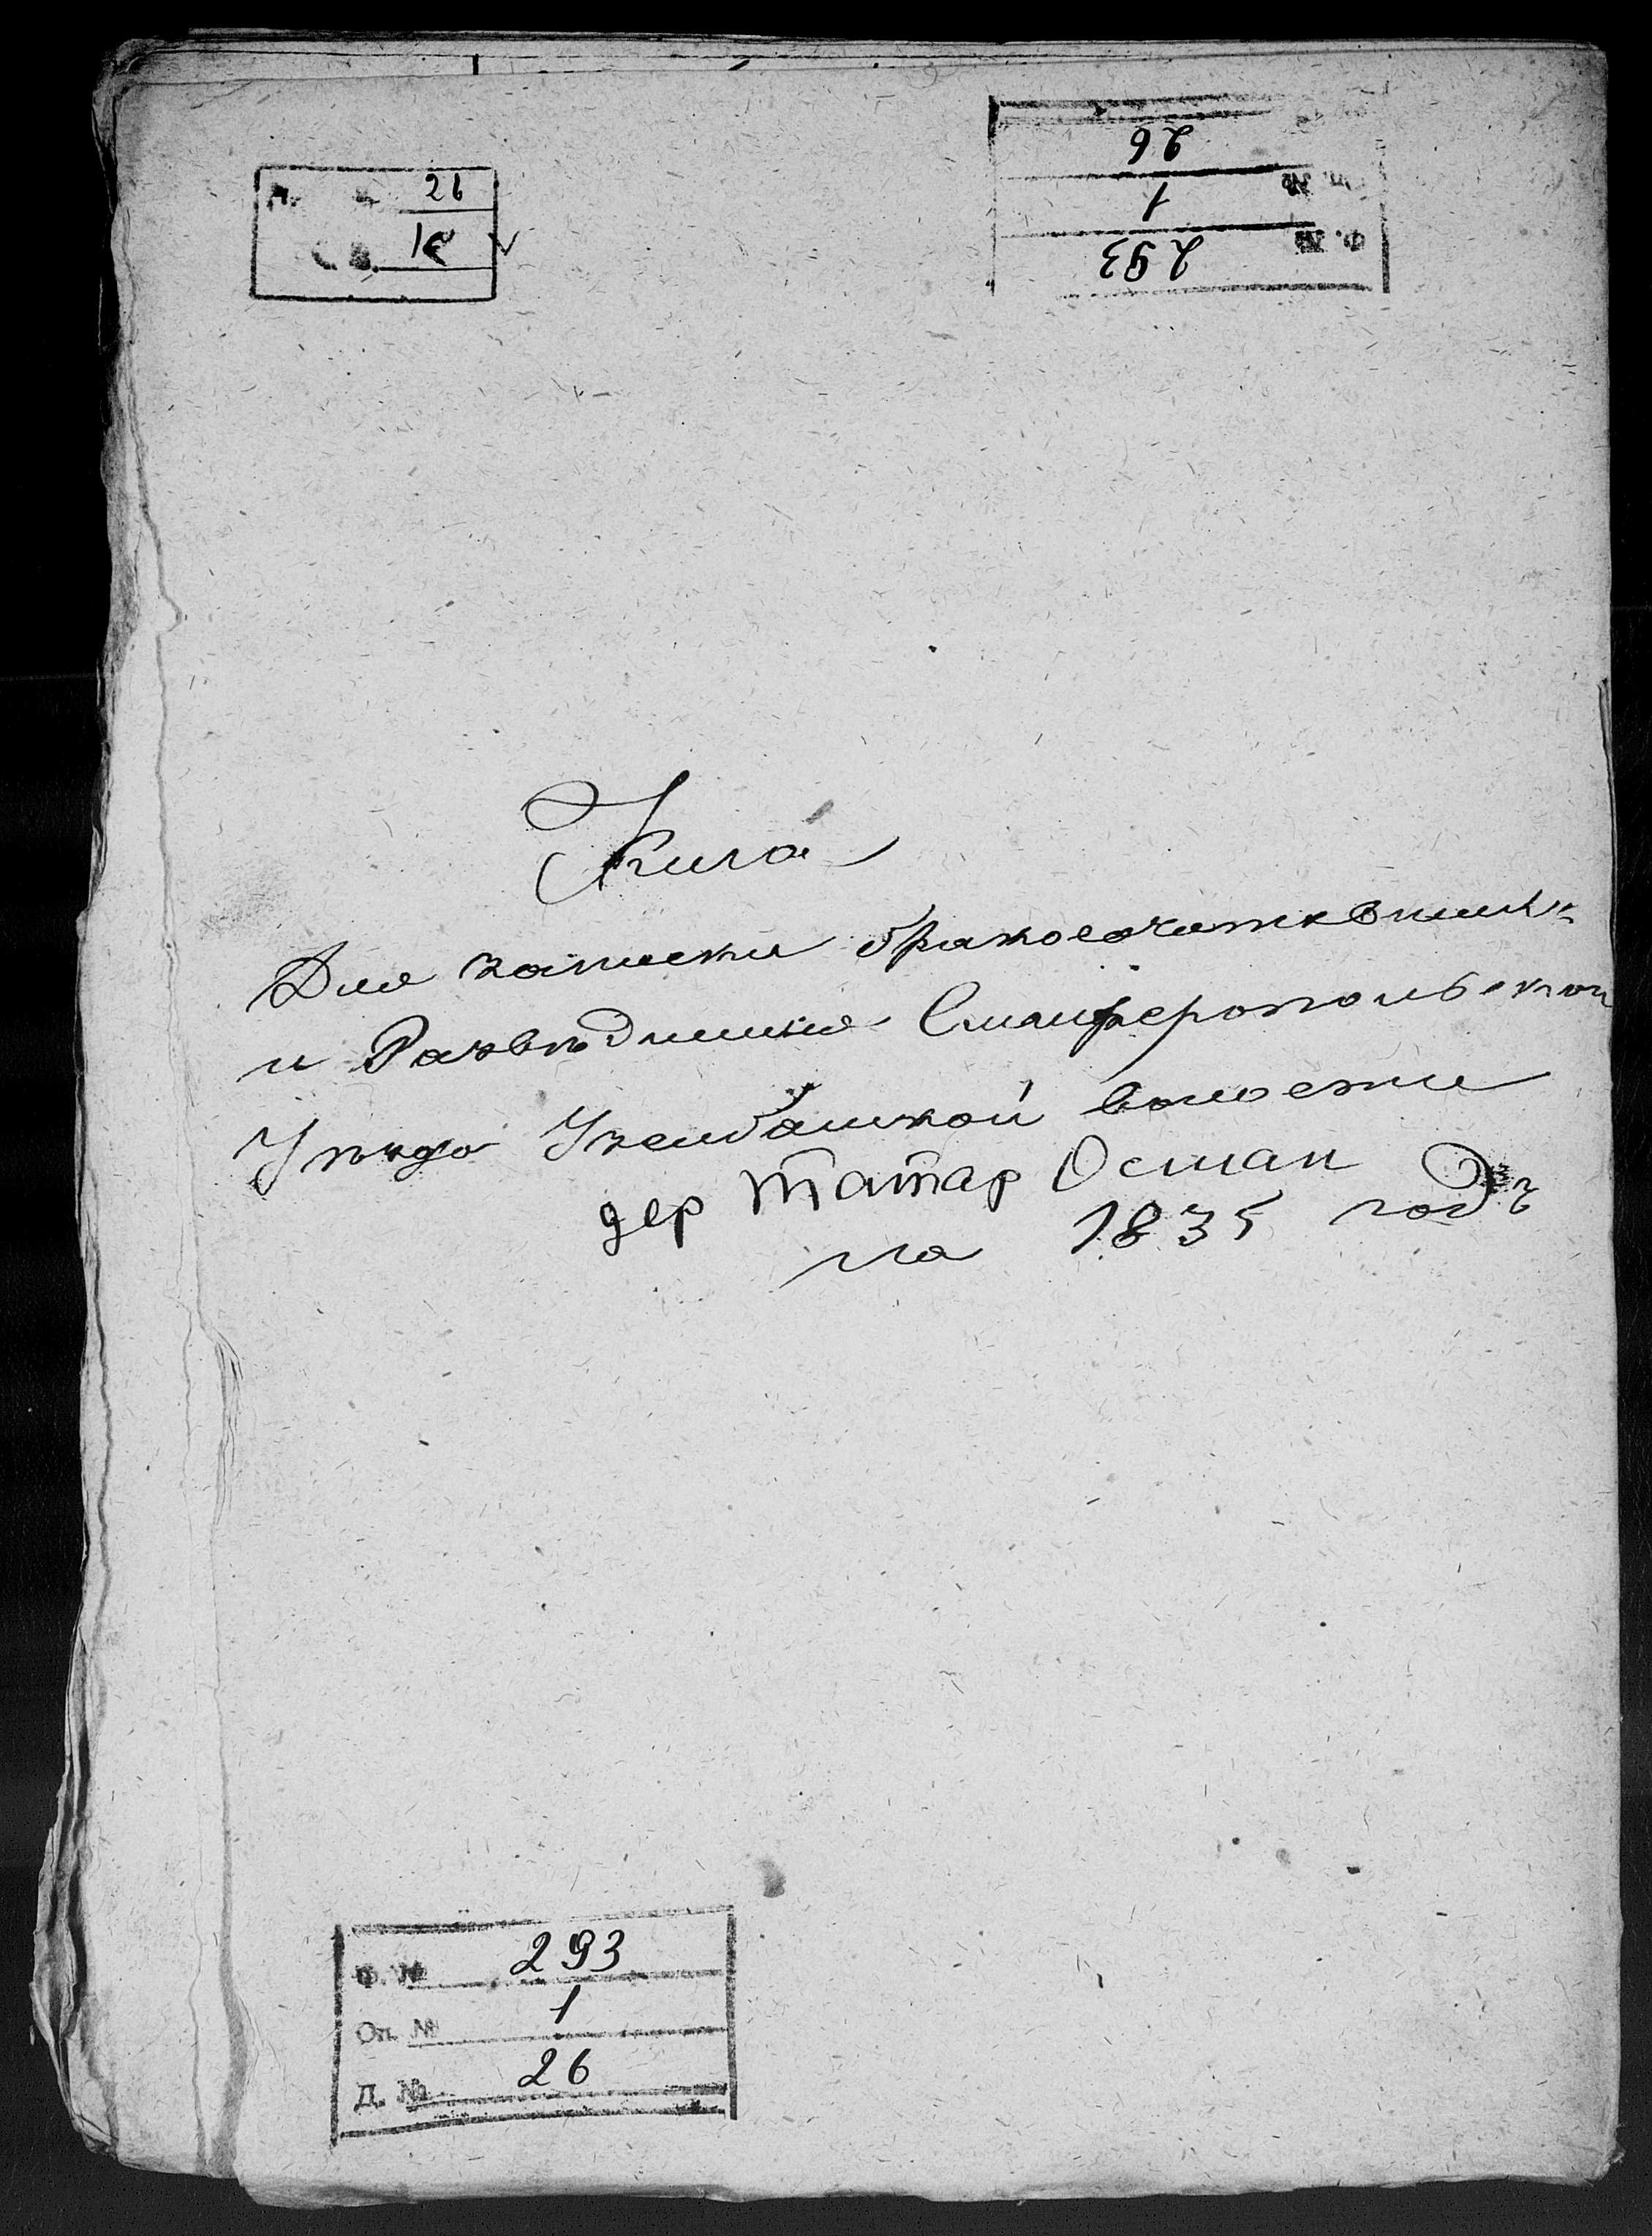 26
Ф. №
293
Оп. №
1
26
Книга
Для записки бракосочетавшихъ
и Разведшихся Симферопольскаго
Уезда Узенбашской волости
дер Татар Осман
на 1835 годъ
Ф. № 293
Оп. № 1
Д. № 26